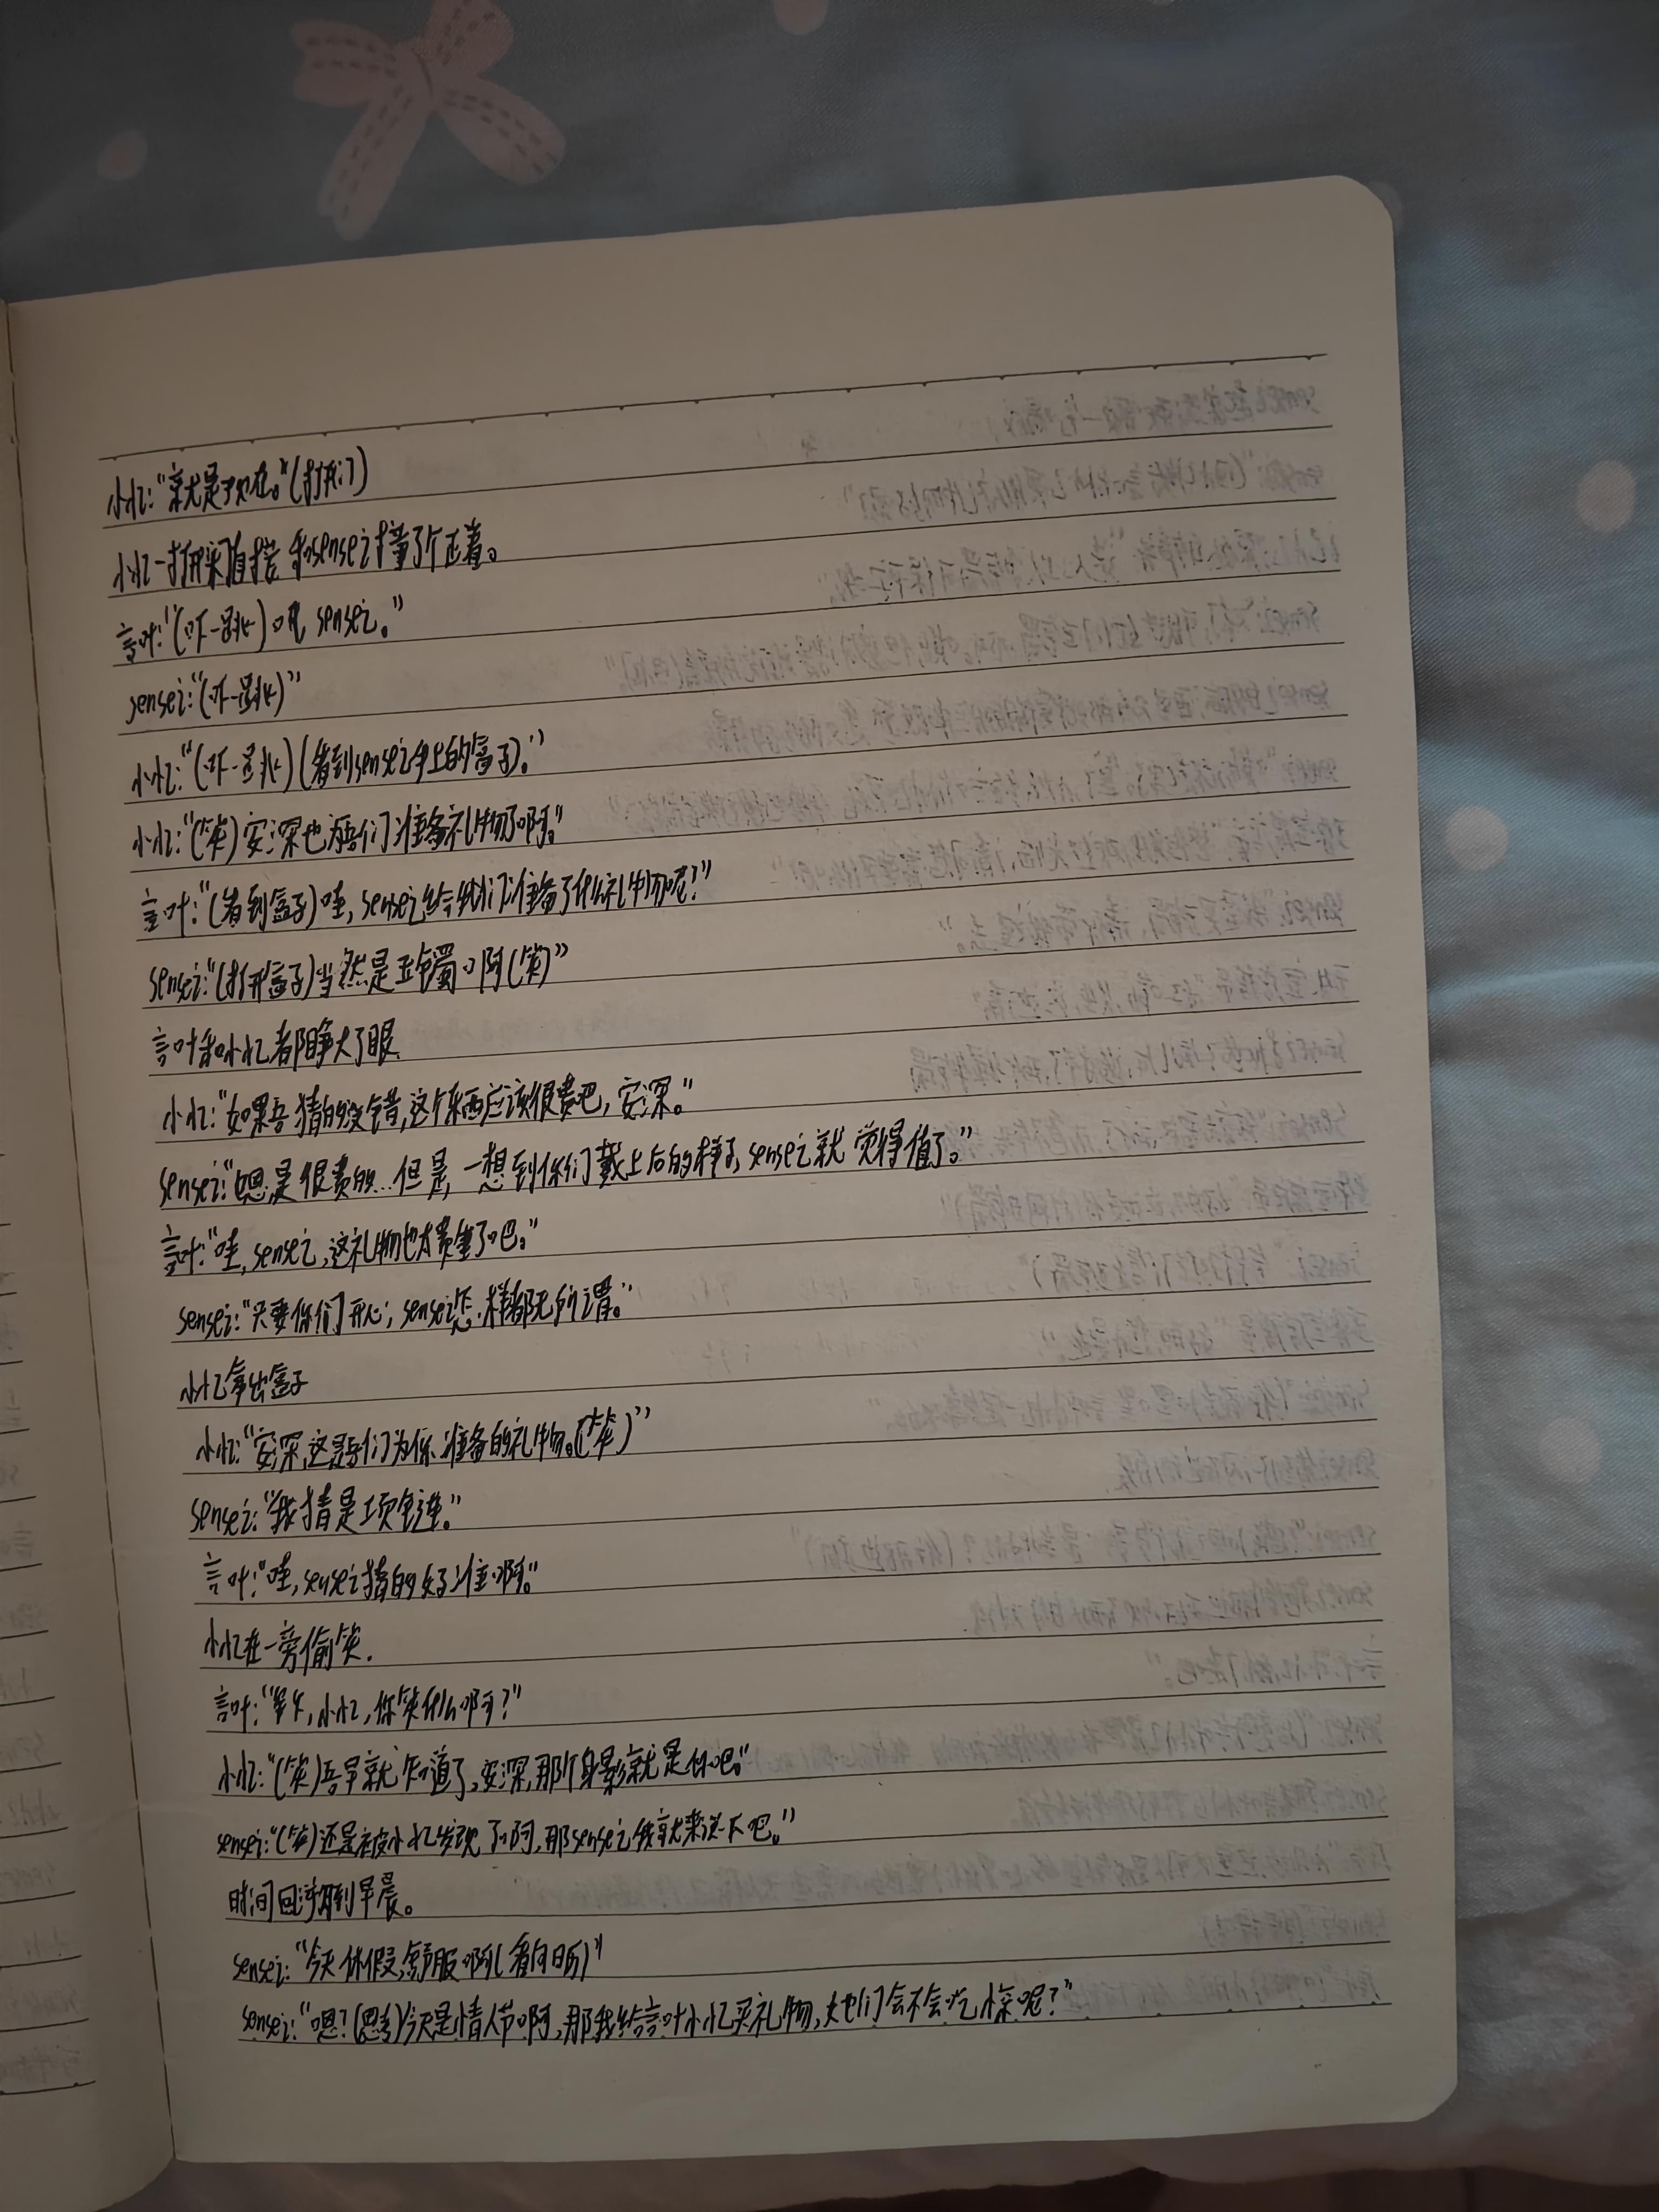 小忆:“就是现在。”(打开门)
小忆一打开门直接和sensei撞了个正着。
言叶:“(吓一跳)呃,sensei。”
sensei:“(吓一跳)”
小忆:“(吓一跳)(看到sensei手上的盒子).”
小忆:“(笑)安深也为吾们准备礼物了啊。”
言叶:“(看到盒子)哇,sensei给我们准备了什么礼物呢?”
sensei:“(打开盒子)当然是玉镯啊(笑)”
言叶和小忆都睁大了眼.
小忆:“如果吾猜的没错,这个东西应该很贵吧,安深。”
sensei:“嗯,是很贵的...但是,一想到你们戴上后的样子,sensei就觉得值了。”
言叶:“哇,sensei,这礼物也太贵重了吧。”
sensei:“只要你们开心,sensei怎样都无所谓。”
小忆拿出盒子
小忆:“安深,这是吾们为你准备的礼物。(笑)”
sensei:“我猜是项链。”
言叶:“哇,sensei猜的好准啊。”
小忆在一旁偷笑.
言叶:“小忆,你笑什么啊?”
小忆:“(笑)吾早就知道了,安深,那个身影就是你吧。”
sensei:“(笑)还是被小忆发现了啊,那sensei我就来说一下吧。”
时间回溯到早晨。
sensei:“今天休假,舒服啊(看向日历)”
sensei:“嗯?(思考)今天是情人节啊,那我给言叶小忆买礼物,她们会不会吃惊呢?”